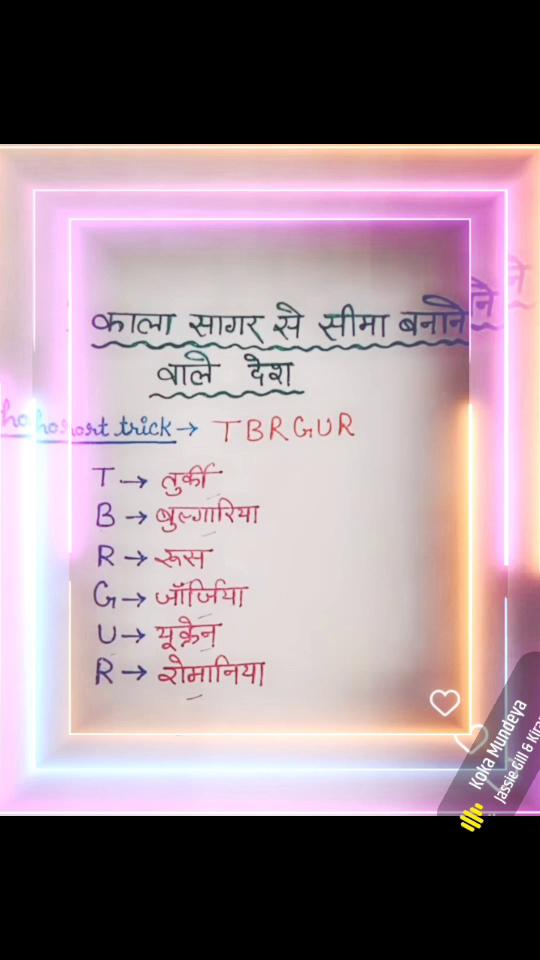 काला सागर से सीमा बनाने
वाले देश
short trick → TBRGUR
T → तुर्की
B → बुल्गारिया
R → रूस
G → जॉर्जिया
U → यूक्रेन
R → रोमानिया
Koka Mundeya
Jassie Gill &